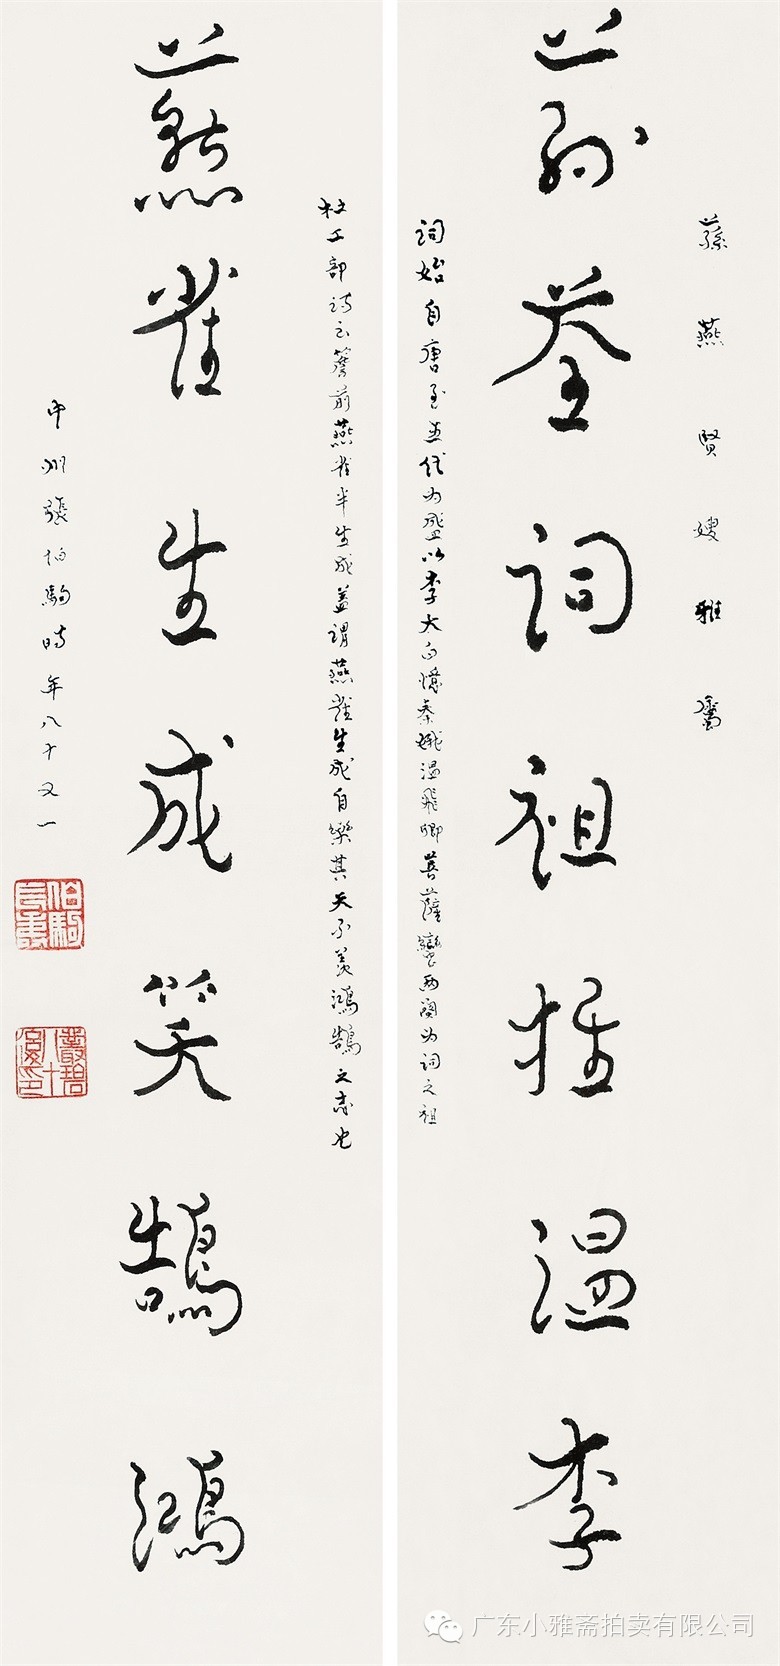 蓀燕賢嫂雅屬
蓀荃詞祖推温李
詞始自唐至五代为盛以李太白憶秦娥温飛卿菩薩蠻两阕为詞之祖
杜工部詩云簷前燕雀半生成蓋謂燕雀生成自樂其天不羡鴻鵠之志也
燕雀生成笑鵠鴻
中州張伯駒時年八十又一
伯駒長壽
叢碧八十後印
广东小雅斋拍卖有限公司